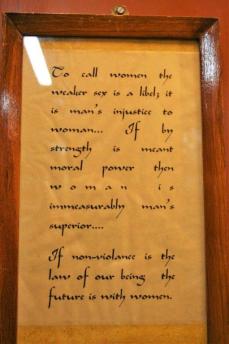 To call women the
weaker sex is a libel; it
is man's injustice to
woman... If by
strength is meant
moral power then
woman is
immeasurably man's
superior....
If non-violance is the
law of our being the
future is with women.